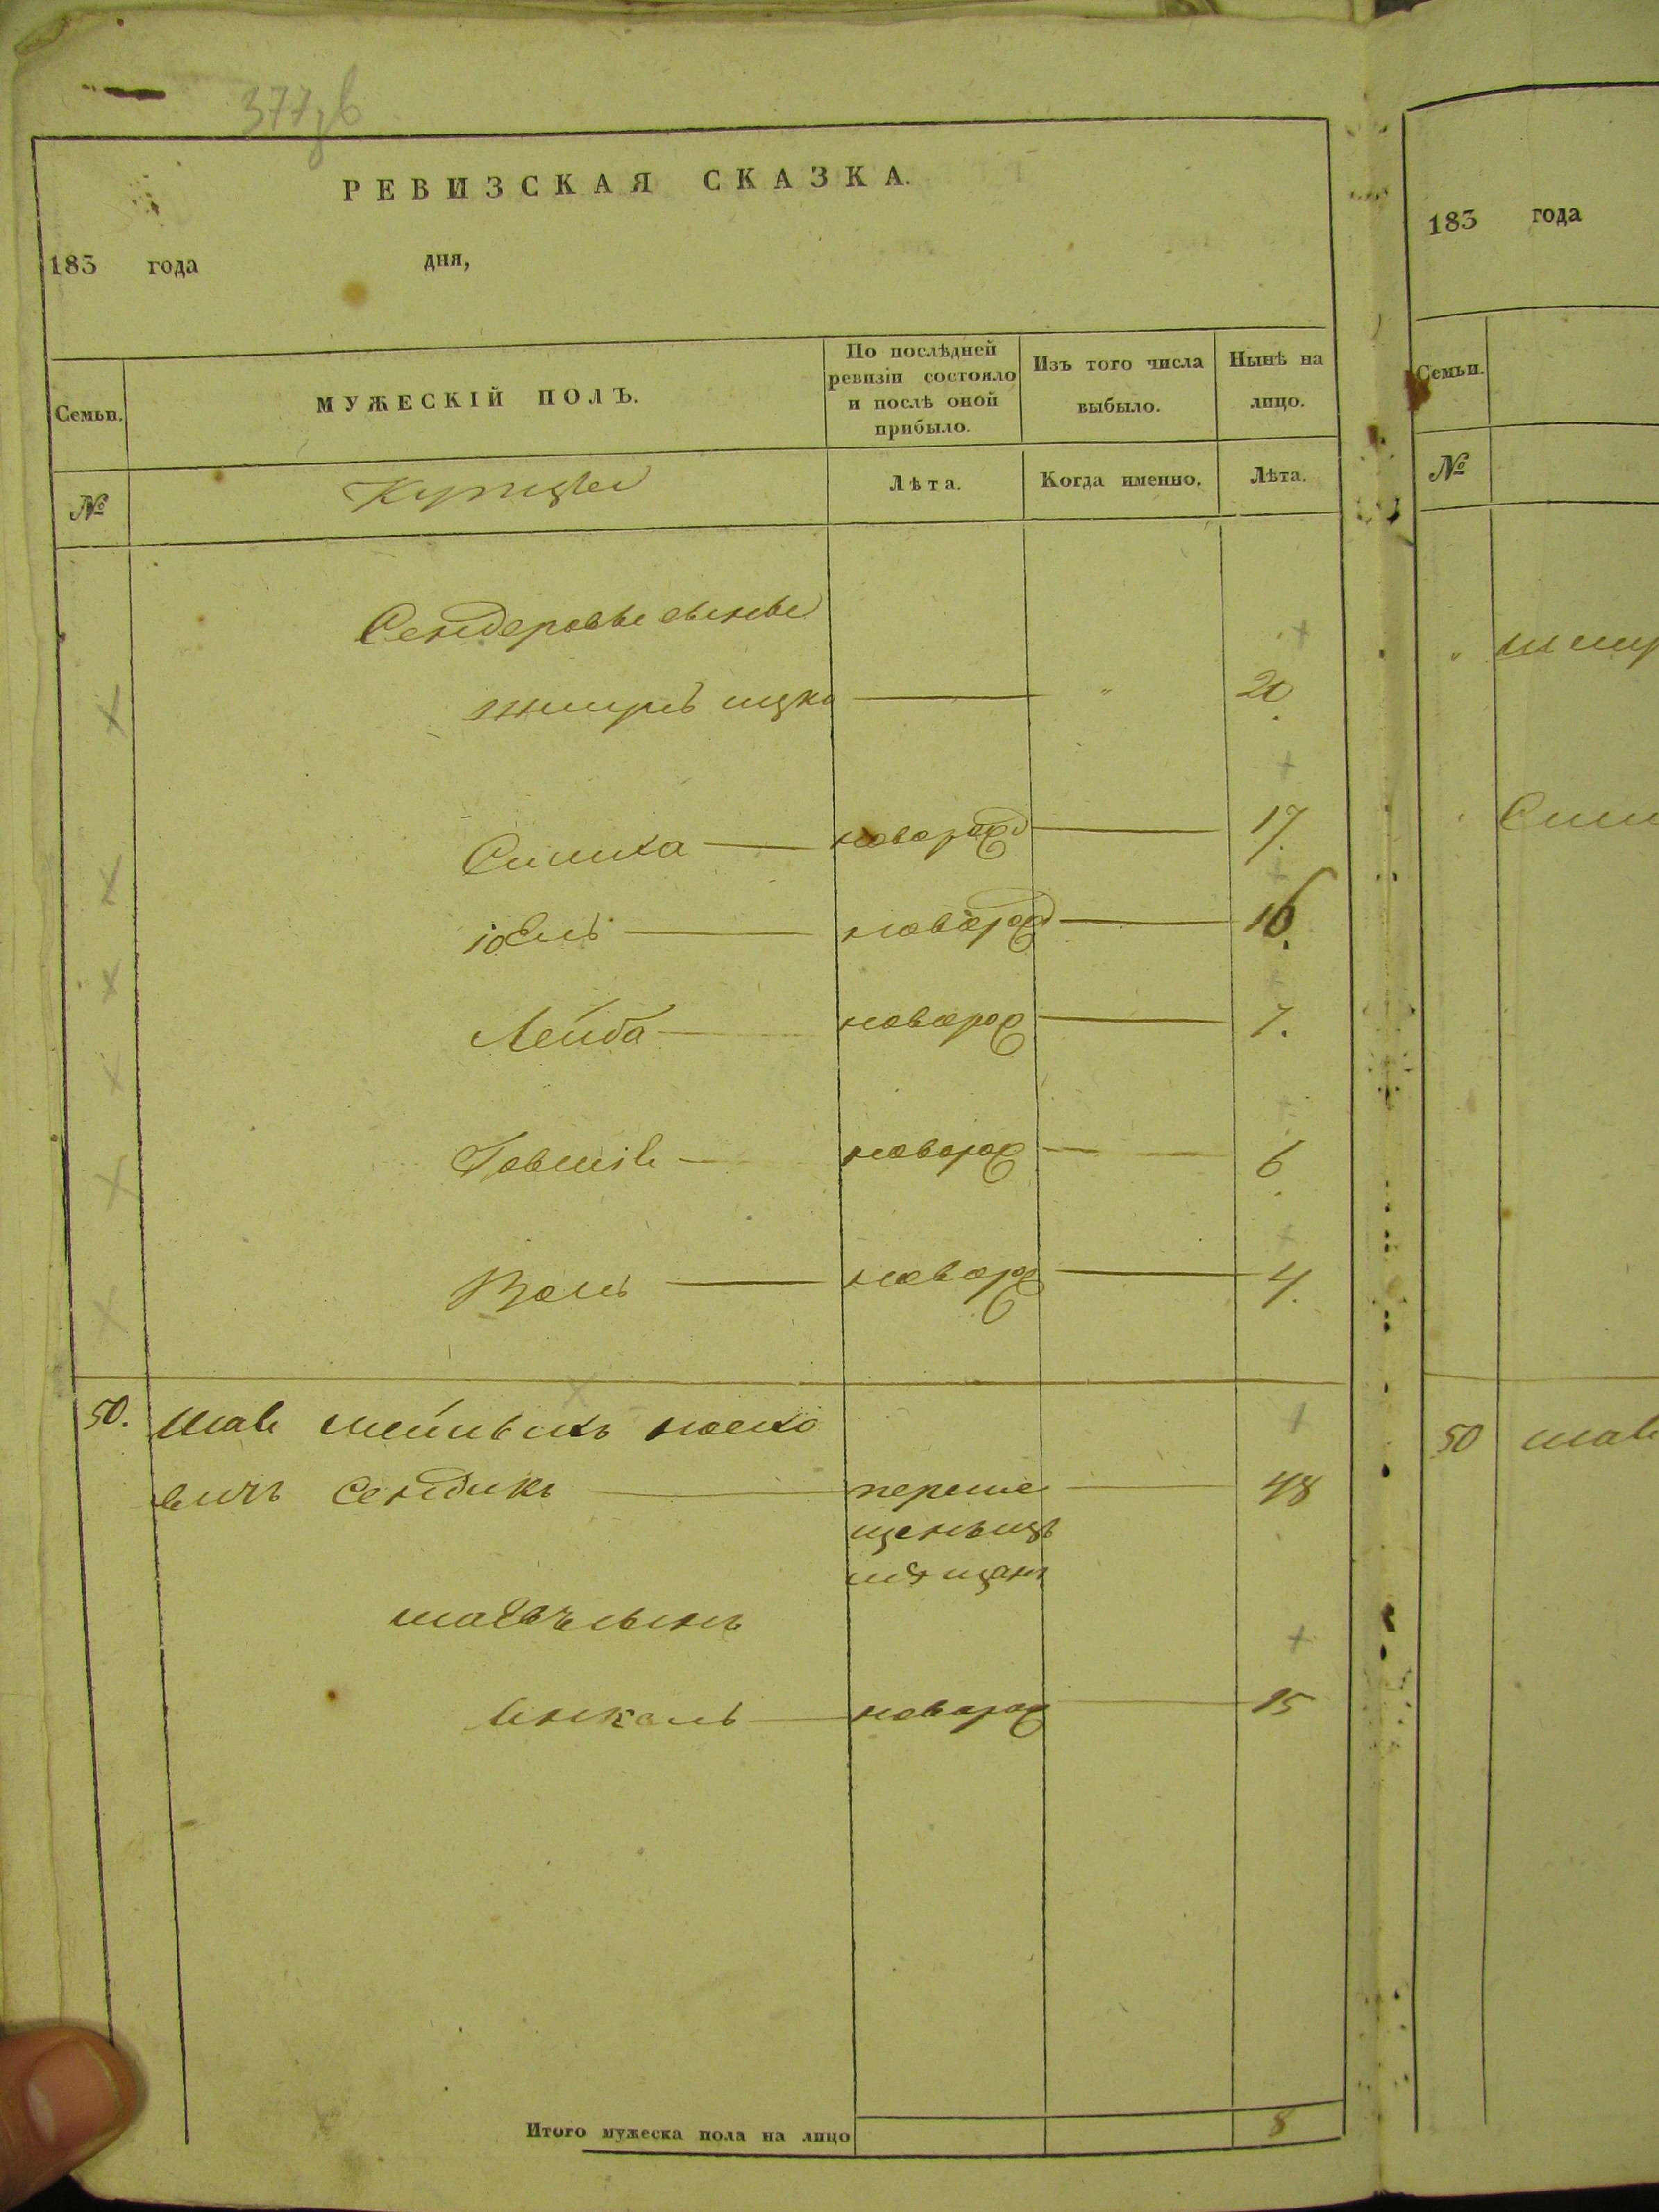 377
РЕВИЗСКАЯ СКАЗКА.
183 года дня,
Семьи.
МУЖЕСКІЙ ПОЛЪ.
По послѣдней ревизіи состояло и послѣ оной прибыло.
Изъ того числа выбыло.
Нынѣ на лицо.
№
Купцы
Лѣта.
Когда именно.
Лѣта.
Сендеровы сыновья
ицко " 20
Симха новорожд 17.
іоель новорожд 16.
Лейба новорож 7.
Говшіе новорож 6
Волъ новорож 4.
50. Шае
вичъ Сендикъ переме 48
щенъ изъ
мѣщанъ
шаевъ сынъ
Янкель новорож 15
Итого мужеска пола на лицо 8
183 года
Семьи.
№
50 шае